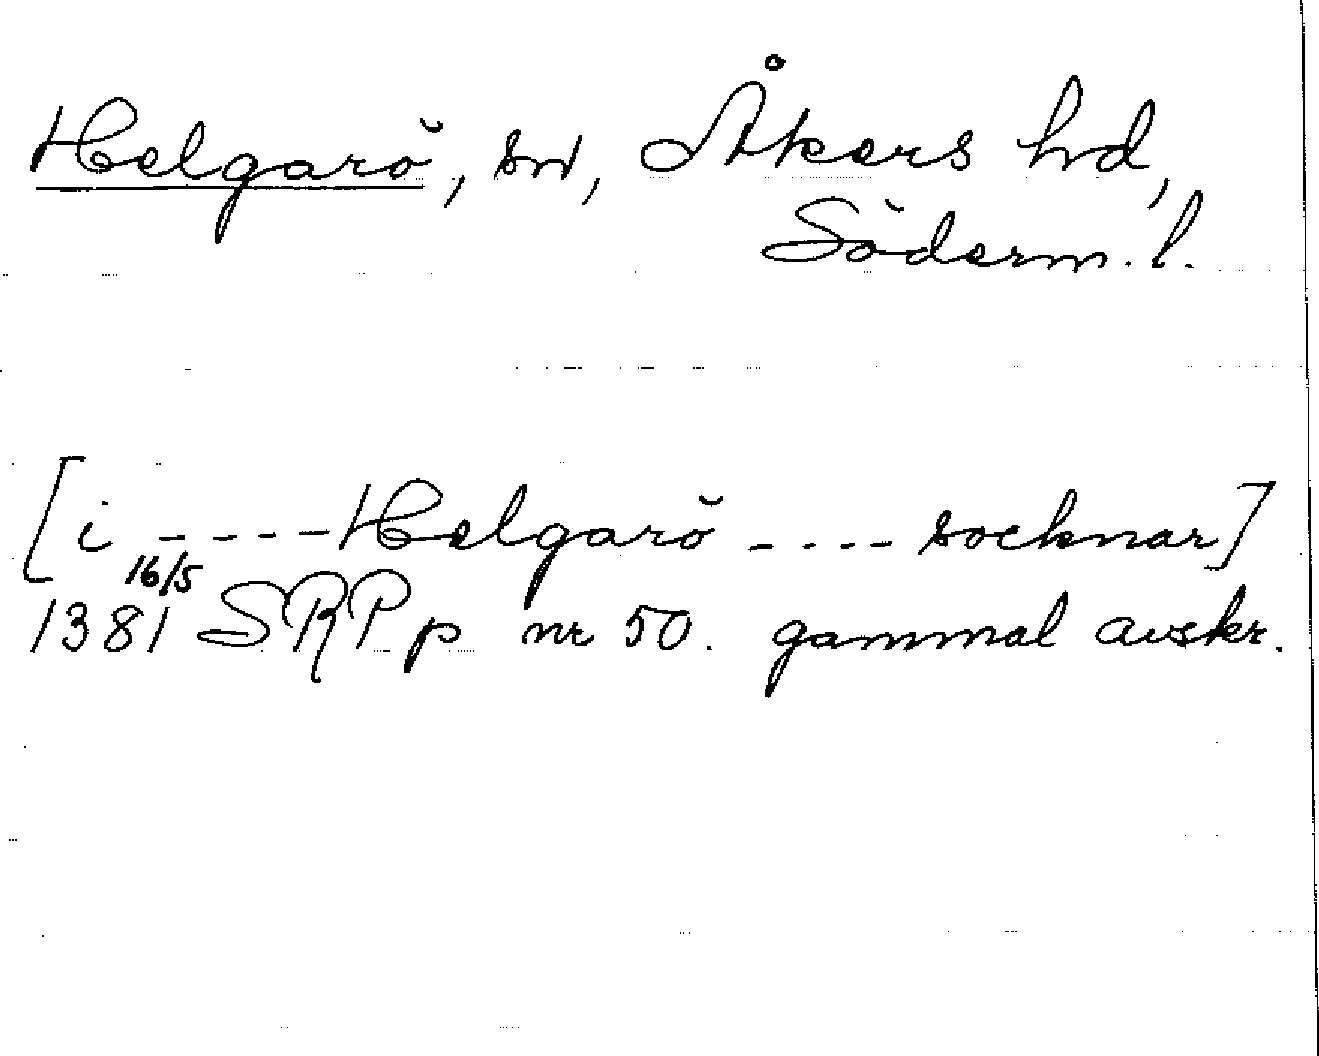 Helgarö, sn, Åkers hd,
Söderm. l.
[i ---- Helgarö ---- socknar]
16/5
1381 SRPp nr 50. gammal avskr.